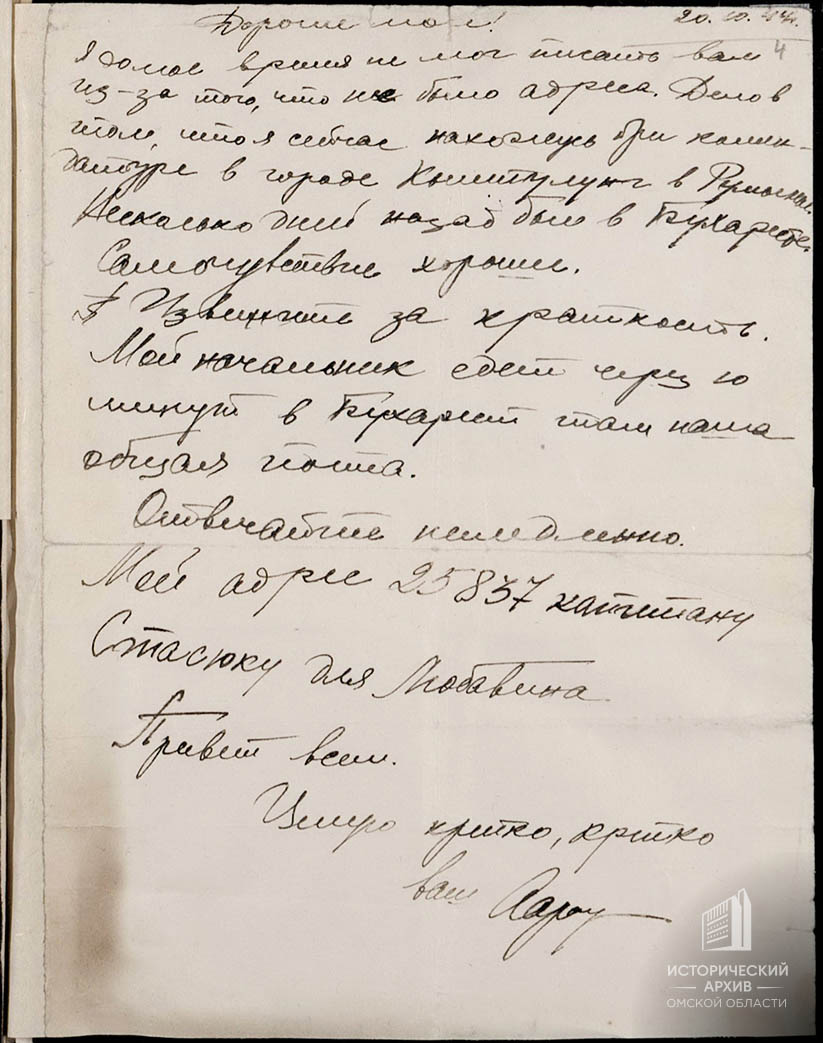 Дорогие мои!
20.10.44г.
4
Я долгое время не мог писать вам
из-за того, что не было адреса. Дело в
том что я сейчас нахожусь при комен-
датуре в городе Кымпулунг в Румынии.
Несколько дней назад был в Бухаресте.
Самочувствие хорошее.
Извините за краткость.
Мой начальник едет через 10
минут в Бухарест там наша
общая почта.
Отвечайте немедленно.
Мой адрес 25837 капитану
Стасюку для Любавина
Привет всем.
Целую крепко, крепко
ваш
ИСТОРИЧЕСКИЙ
АРХИВ
ОМСКОЙ ОБЛАСТИ